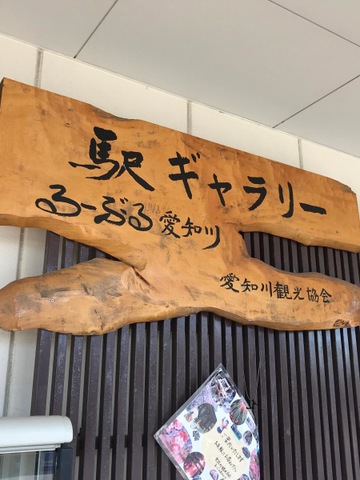 駅ギャラリー
るーぶる愛知川
愛知川観光協会